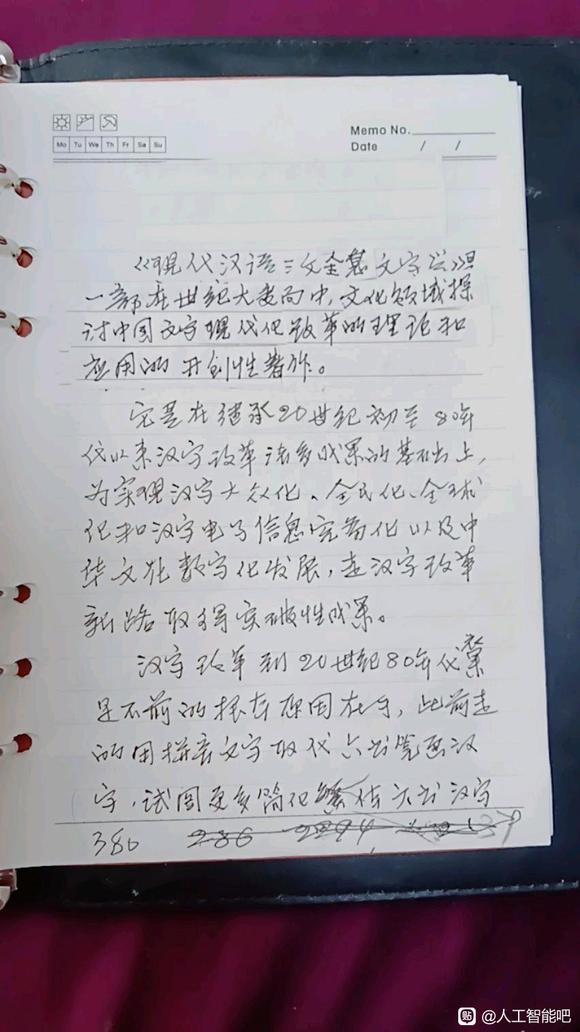 Memo No.
Mo Tu We Th Fr Sa Su
Date / /
《现代汉语三文全息文字学》是
一部在世纪大变局中，文化领域探
讨中国文字现代化改革的理论和
应用的开创性著作。
它是在继承20世纪初至80年
代以来汉字改革诸多成果的基础上，
为实现汉字大众化、全民化、全球
化和汉字电子信息完备化以及中
华文化数字化发展，走汉字改革
新路取得突破性成果。
汉字改革到20世纪80年代
足不前的根本原因在于，此前走
的用拼音文字取代六书笔画汉
字，试图更多简化繁体六书汉字
380
286 2294
@人工智能吧